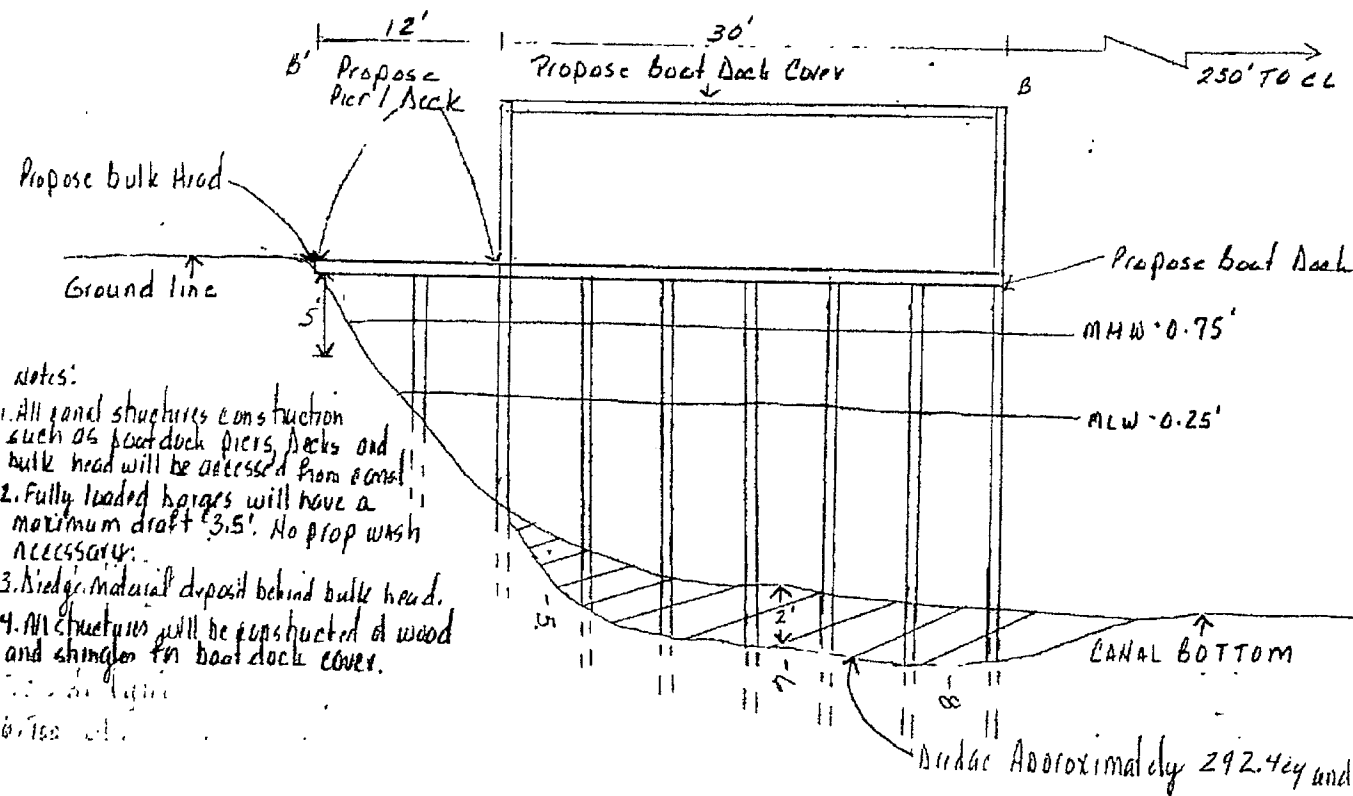 12' 30'
B' Propose Boat Dock Cover B 250' TO CL
Propose
Pier / Deck
Propose bulk Head
Ground line
Propose Boat Dock
5'
MHW 0.75'
MLW 0.25'
Notes:
1. All canal structures construction
such as boatdock piers, Decks and
bulk head will be accessed from canal
2. Fully loaded barges will have a
maximum draft 3.5'. No prop wash
necessary.
3. Dredge material deposit behind bulk head.
4. All structures will be constructed of wood
and shingles for boat dock cover.
-5
2'
-7
-8
CANAL BOTTOM
Dredge Approximately 292.4cy and